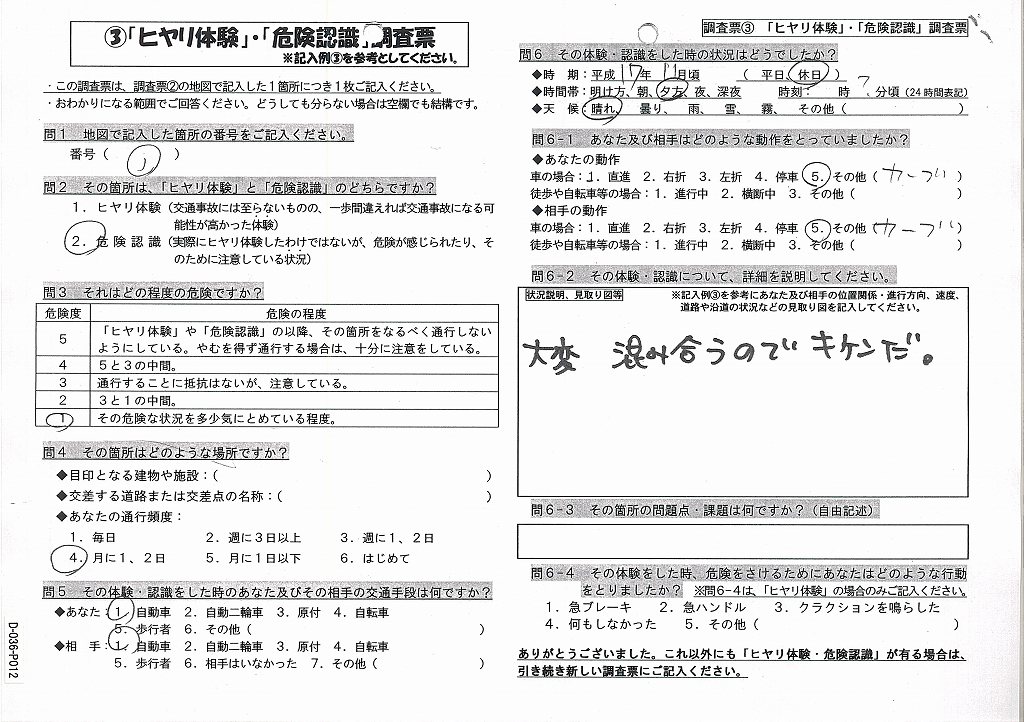 ③「ヒヤリ体験」・「危険認識」調査票
※記入例③を参考としてください。
・この調査票は、調査票②の地図で記入した1箇所につき1枚ご記入ください。
・おわかりになる範囲でご回答ください。どうしても分らない場合は空欄でも結構です。
問1 地図で記入した箇所の番号をご記入ください。
番号（ 1 ）
問2 その箇所は、「ヒヤリ体験」と「危険認識」のどちらですか？
1．ヒヤリ体験（交通事故には至らないものの、一歩間違えれば交通事故になる可
能性が高かった体験）
2．危険認識（実際にヒヤリ体験したわけではないが、危険が感じられたり、そ
のために注意している状況）
問3 それはどの程度の危険ですか？
危険度 危険の程度
5 「ヒヤリ体験」や「危険認識」の以降、その箇所をなるべく通行しない
ようにしている。やむを得ず通行する場合は、十分に注意をしている。
4 5と3の中間。
3 通行することに抵抗はないが、注意している。
2 3と1の中間。
1 その危険な状況を多少気にとめている程度。
問4 その箇所はどのような場所ですか？
◆目印となる建物や施設：（ ）
◆交差する道路または交差点の名称：（ ）
◆あなたの通行頻度：
1．毎日 2．週に3日以上 3．週に1、2日
4．月に1、2日 5．月に1日以下 6．はじめて
問5 その体験・認識をした時のあなた及びその相手の交通手段は何ですか？
◆あなた：1．自動車 2．自動二輪車 3．原付 4．自転車
5．歩行者 6．その他（ ）
◆相 手：1．自動車 2．自動二輪車 3．原付 4．自転車
5．歩行者 6．相手はいなかった 7．その他（ ）
D-036-P012
調査票③ 「ヒヤリ体験」・「危険認識」調査票
問6 その体験・認識をした時の状況はどうでしたか？
◆時 期：平成 17 年 11 月頃 （ 平日、休日 ）
◆時間帯：明け方、朝、夕方、夜、深夜 時刻： 時 ？ 分頃（24時間表記）
◆天 候：晴れ、 曇り、 雨、 雪、 霧、 その他（ ）
問6-1 あなた及び相手はどのような動作をとっていましたか？
◆あなたの動作
車の場合：1．直進 2．右折 3．左折 4．停車 5．その他（ カーブ ）
徒歩や自転車等の場合：1．進行中 2．横断中 3．その他（ ）
◆相手の動作
車の場合：1．直進 2．右折 3．左折 4．停車 5．その他（ カーブ ）
徒歩や自転車等の場合：1．進行中 2．横断中 3．その他（ ）
問6-2 その体験・認識について、詳細を説明してください。
状況説明、見取り図等 ※記入例③を参考にあなた及び相手の位置関係・進行方向、速度、
道路や沿道の状況などの見取り図を記入してください。
大変 混み合うので キケンだ。
問6-3 その箇所の問題点・課題は何ですか？（自由記述）
問6-4 その体験をした時、危険をさけるためにあなたはどのような行動
をとりましたか？ ※問6-4は、「ヒヤリ体験」の場合のみご記入ください。
1．急ブレーキ 2．急ハンドル 3．クラクションを鳴らした
4．何もしなかった 5．その他（ ）
ありがとうございました。これ以外にも「ヒヤリ体験・危険認識」が有る場合は、
引き続き新しい調査票にご記入ください。